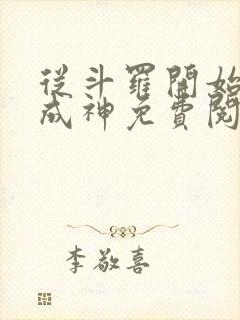 從斗羅開始
成神免費閱
李敬喜